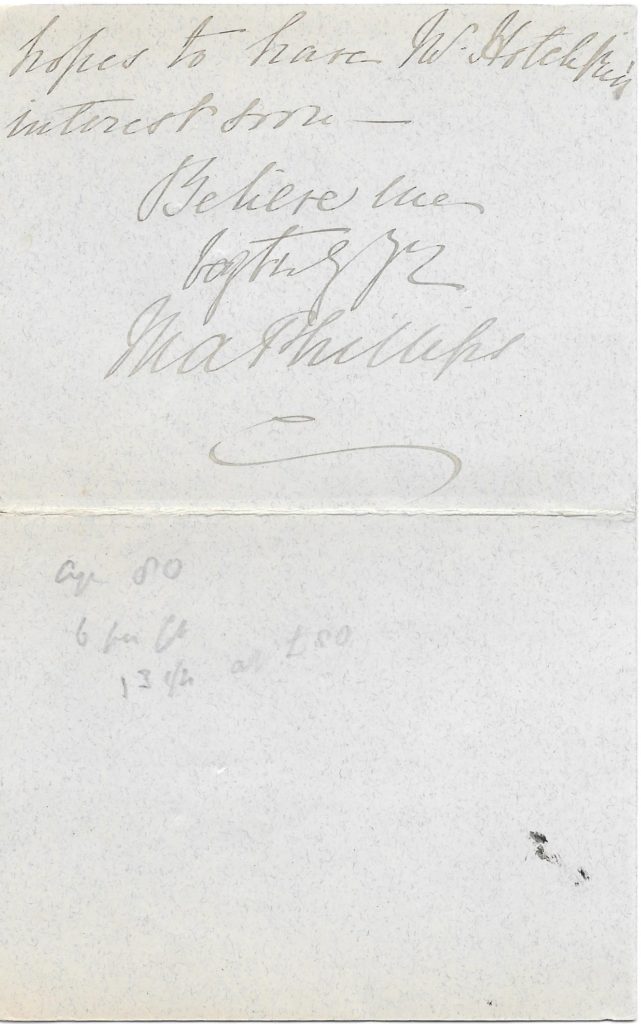 hopes to have Mr. Hotchkin's
interest soon —
Believe me
MA Phillips
age 80
6 per ct
13 at £80